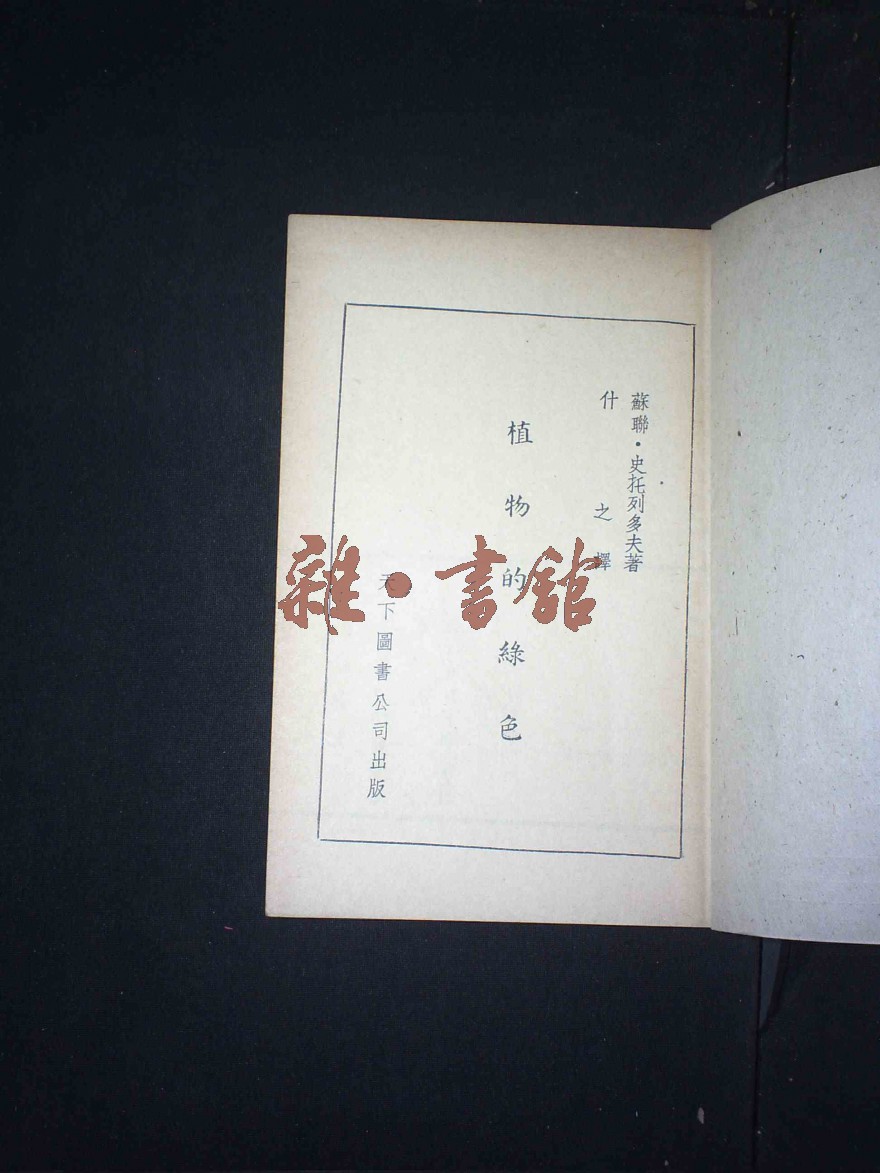 蘇聯·史托列多夫著
什之譯
植物的綠色
天下圖書公司出版
雜·書館